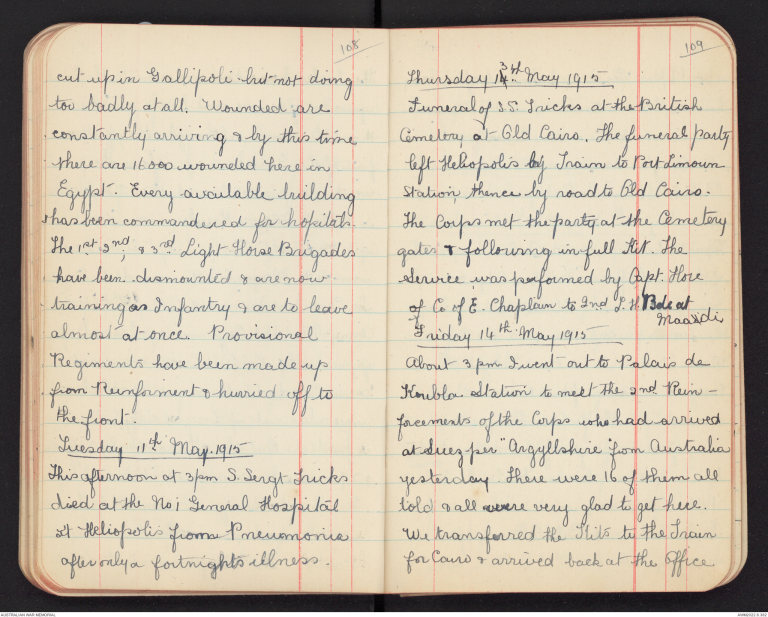 108
cut up in Gallipoli but not doing
too badly at all. Wounded are
constantly arriving & by this time
there are 16000 wounded here in
Egypt. Every available building
has been commandered for hopitals.
The 1st 2nd, & 3rd Light Horse Brigades
have been dismounted & are now
training as Infantry & are to leave
almost at once. Provisional
Regiments have been made up
from Reinforment & hurried off to
the front.
Tuesday 11th May. 1915
This afternoon at 3pm S. Sergt Tricks
died at the No 1 General Hospital
at Heliopolis from Pneumonia
after only a fortnights illness.
109
Thursday 13th May 1915
Funeral of S.S. Tricks at the British
Cemetery at Old Cairo. The funeral party
left Heliopolis by Train to Port Limoun
Station, thence by road to Old Cairo.
The Corps met the party at the Cemetery
gates & following in full Kit. The
Service was performed by Capt. Hore
of C of E. Chaplain to 2nd L.H. Bde at
Maardi
Friday 14th May 1915
About 3 pm I went out to Palais de
Koubla Station to meet the 2nd Rein-
forcements of the Corps who had arrived
at Suez per "Argyllshire" from Australia
yesterday. There were 16 of them all
told & all were very glad to get here.
We transferred the Kits to the Train
for Cairo & arrived back at the Office
AUSTRALIAN WAR MEMORIAL